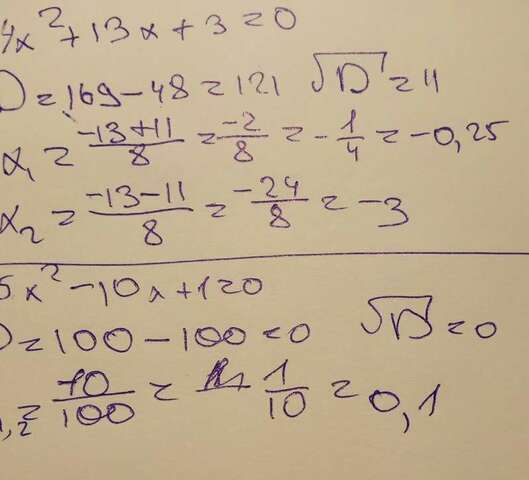 4x² + 13x + 3 = 0
D = 169 - 48 = 121 √D = 11
x₁ = (-13+11)/8 = -2/8 = -1/4 = -0,25
x₂ = (-13-11)/8 = -24/8 = -3
5x² - 10x + 1 = 0
D = 100 - 100 = 0 √D = 0
₁,₂ = 10/100 = 1/10 = 0,1